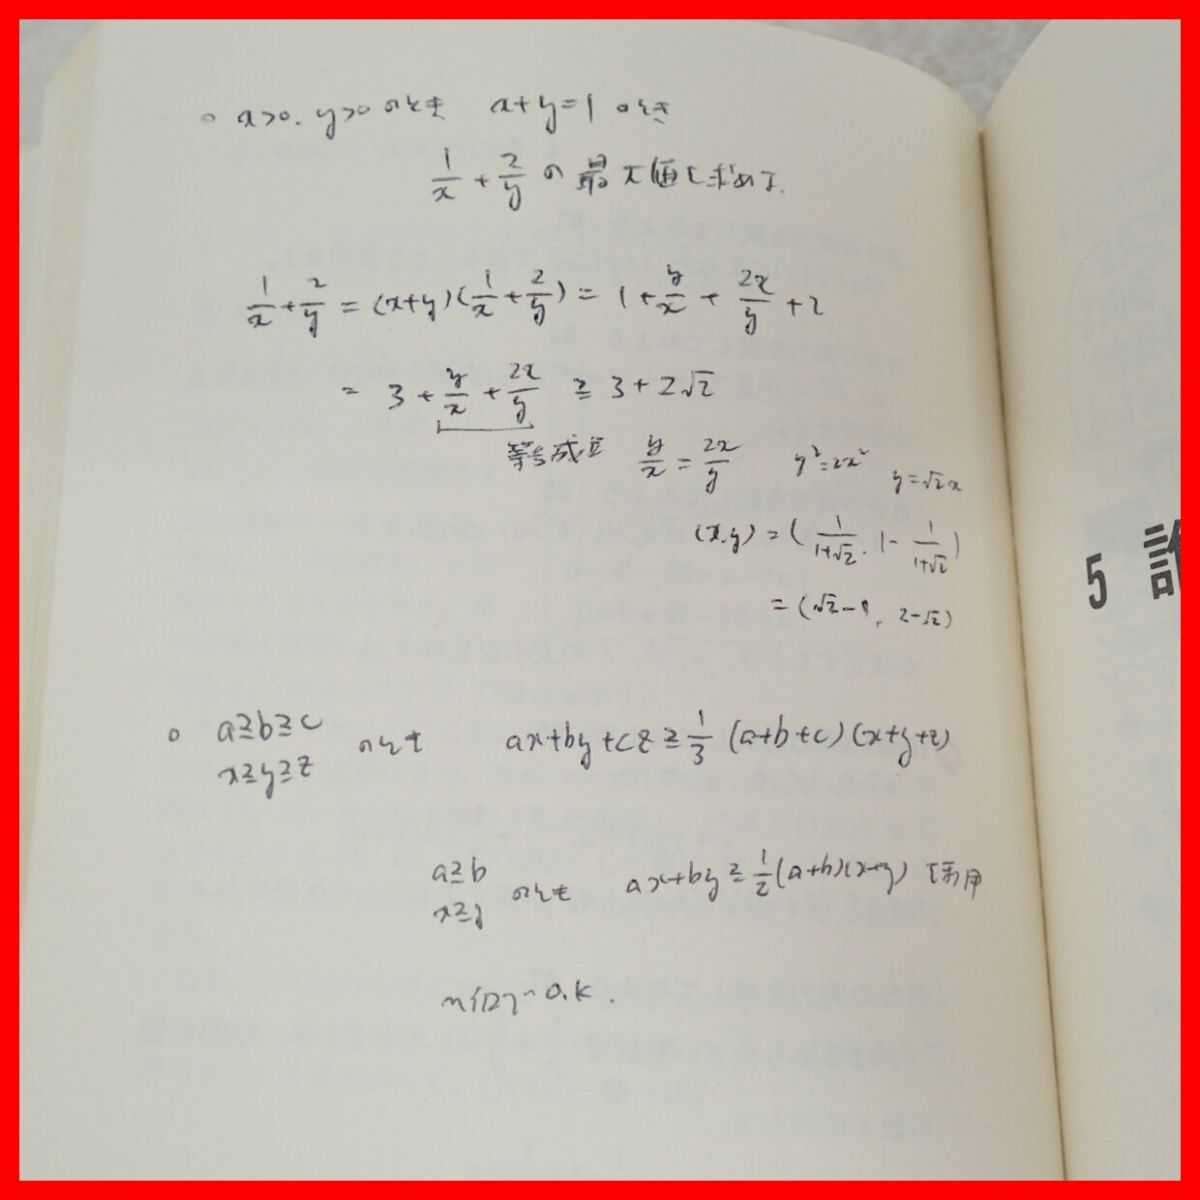 ○ x>0, y>0のとき x+y=1のとき
1/x + 2/y の最大値を求めよ.
1/x + 2/y = (x+y)(1/x + 2/y) = 1 + y/x + 2x/y + 2
= 3 + y/x + 2x/y ≧ 3 + 2√2
等号成立 y/x = 2x/y y²=2x² y=√2x
(x,y) = (1/(1+√2), 1 - 1/(1+√2))
= (√2-1, 2-√2)
○ a≧b≧c
x≧y≧z のとき ax+by+cz ≧ 1/3 (a+b+c)(x+y+z)
a≧b
x≧y のとき ax+by ≧ 1/2 (a+b)(x+y) を利用
o.k.
5